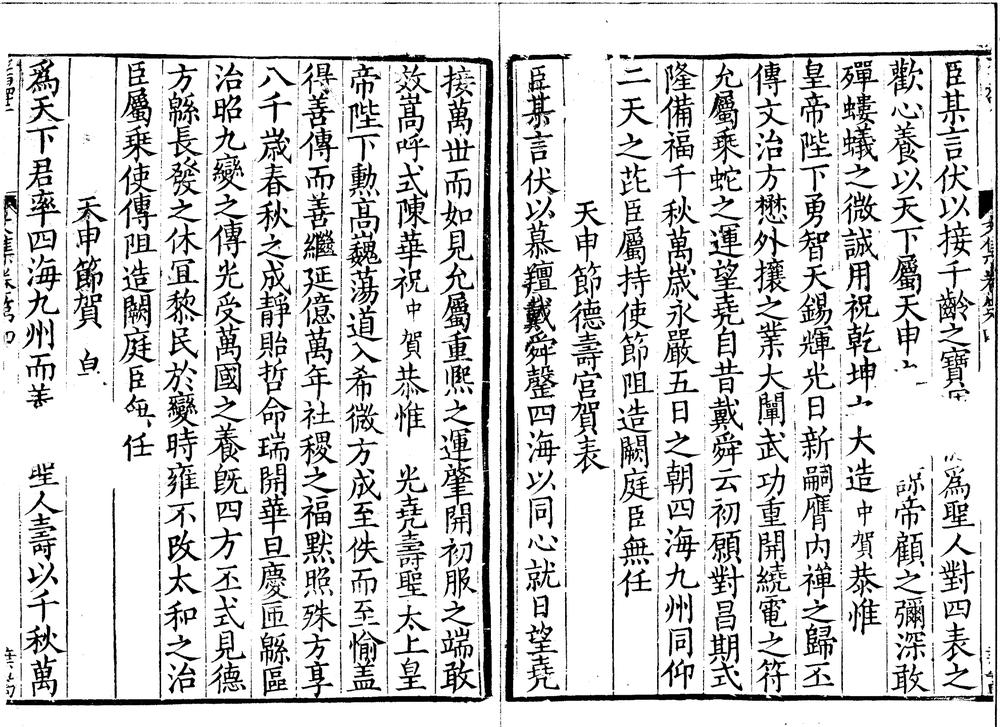 臣某言伏以接千齡之寶 爲聖人對四表之
歡心養以天下屬天申 帝顧之彌深敢
殫螻蟻之微誠用祝乾坤 大造中賀恭惟
皇帝陛下勇智天錫輝光日新嗣膺内禪之歸丕
傳文治方懋外攘之業大闡武功重開繞電之符
允屬乘蛇之運望堯自昔戴舜云初願對昌期式
隆備福千秋萬歲永嚴五日之朝四海九州同仰
二天之芘臣屬持使節阻造闕庭臣無任
天申節德壽宮賀表
臣某言伏以慕羶戴舜罄四海以同心就日望堯
接萬世而如見允屬重熙之運肇開初服之端敢
效嵩呼式陳華祝中賀恭惟 光堯壽聖太上皇
帝陛下勲高巍蕩道入希微方成至佚而至愉蓋
得善傳而善繼延億萬年社稷之福默照殊方享
八千歲春秋之成靜貽哲命瑞開華旦慶匝緜區
治昭九變之傳光受萬國之養既四方丕式見德
方緜長發之休宜黎民於變時雍不改太和之治
臣屬乘使傳阻造闕庭臣無任
天申節賀
爲天下君率四海九州而 聖人壽以千秋萬